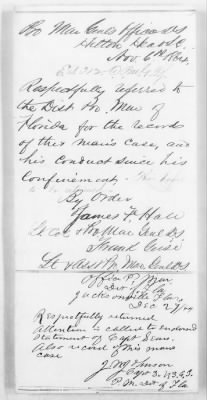 Pro Mar Genl's Office D.S.
Hilton Head S.C.
Nov. 6th 1864.
Respectfully referred to
the Dist. Pro. Mar of
Florida for the records
of this man's case, and
his conduct since his
confinement.
By Order
James F. Hall
Lt Col & Pro Mar Genl D.S.
Lt & Asst Pro. Mar. Genl D.S.
Office P.
Jacksonville Fla
Dec 27/64
Respectfully returned
attention is called to enclosed
statement of Capt Sears.
Also record of this mans
case
Capt 3. U.S.C.T.
P.M. Dist of Fla